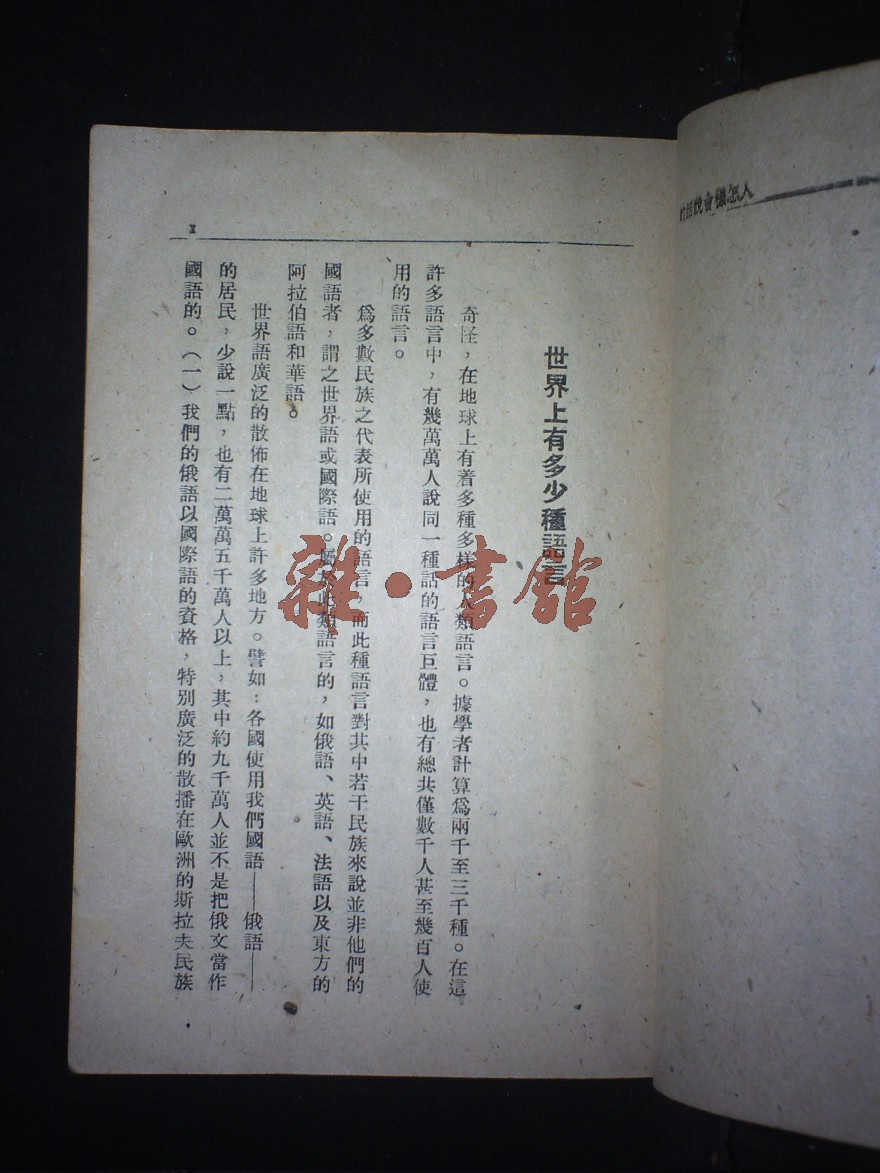 人怎樣會說話的
世界上有多少種語言
奇怪，在地球上有着多種多樣的人類語言。據學者計算爲兩千至三千種。在這
許多語言中，有幾萬萬人說同一種話的語言巨體，也有總共僅數千人甚至幾百人使
用的語言。
爲多數民族之代表所使用的語言，而此種語言對其中若干民族來說並非他們的
國語者，謂之世界語或國際語。屬於此類語言的，如俄語、英語、法語以及東方的
阿拉伯語和華語。
世界語廣泛的散佈在地球上許多地方。譬如：各國使用我們國語——俄語——
的居民，少說一點，也有二萬萬五千萬人以上，其中約九千萬人並不是把俄文當作
國語的。（一）我們的俄語以國際語的資格，特別廣泛的散播在歐洲的斯拉夫民族
I
雜·書館